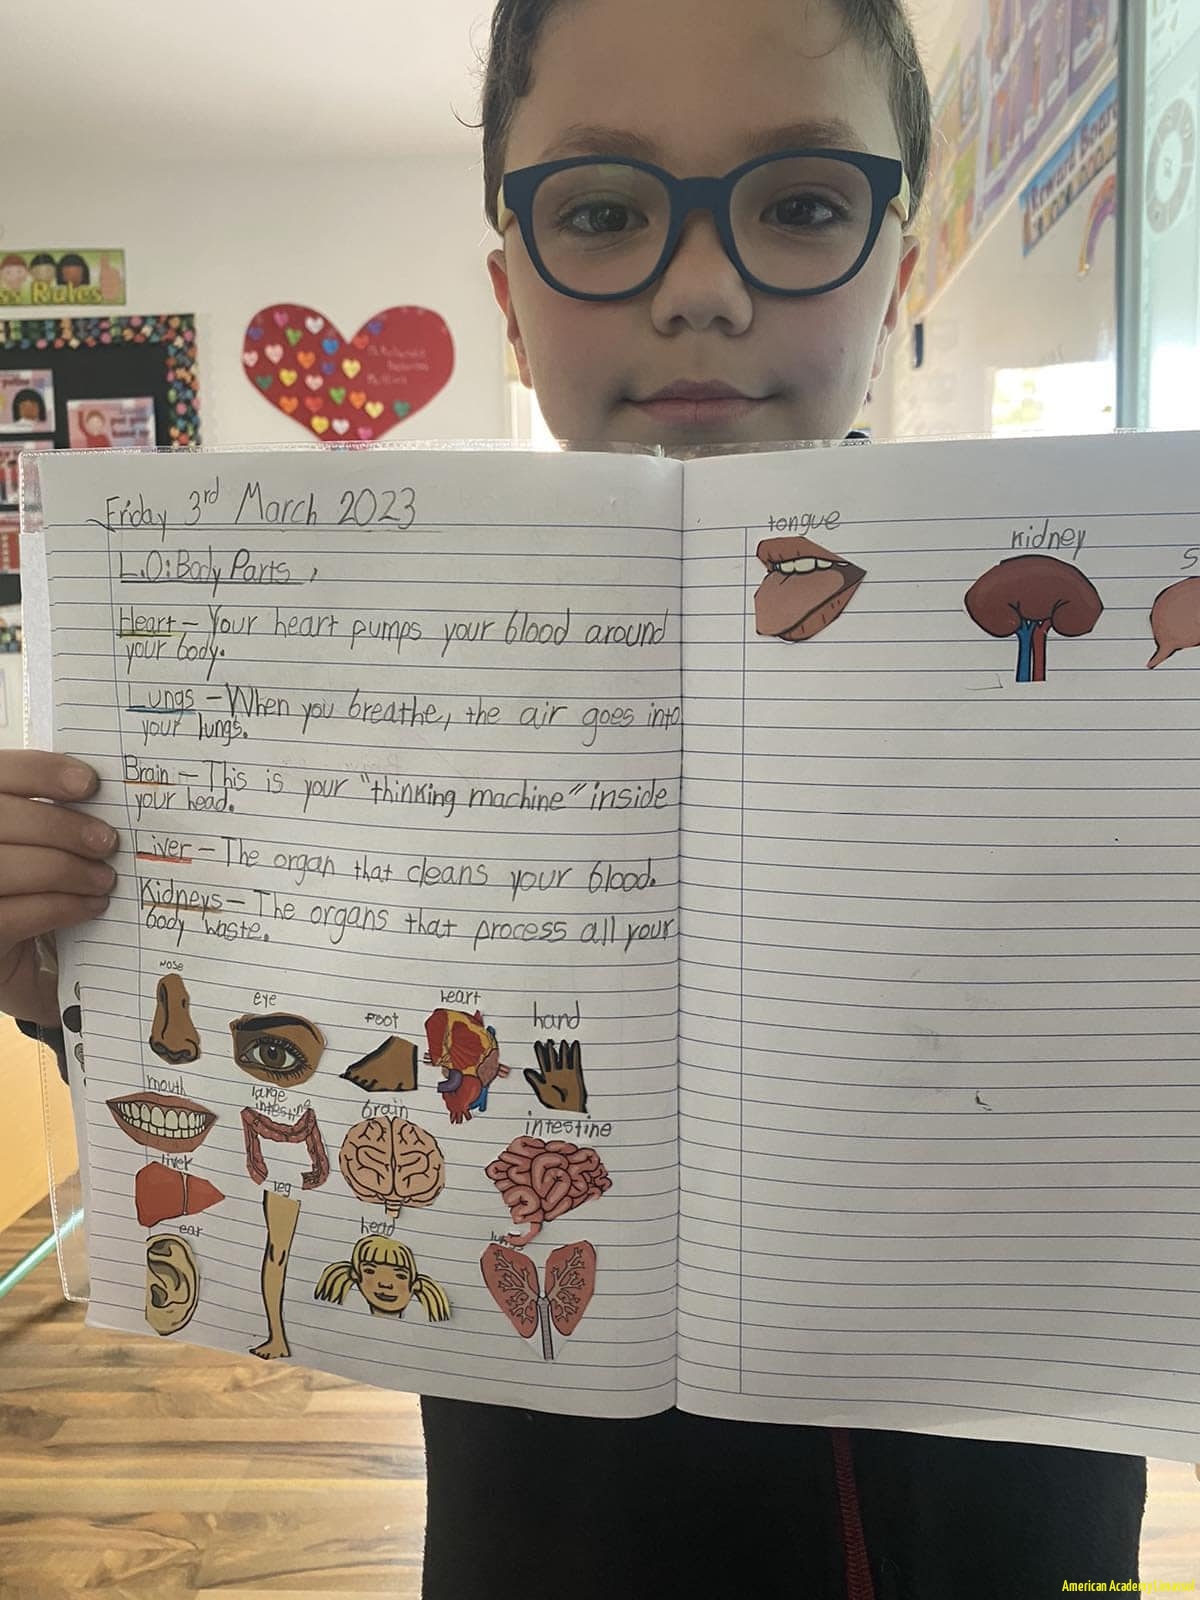 Rules
Reward Board
Friday 3rd March 2023
L.O: Body Parts
Heart - Your heart pumps your blood around
your body.
Lungs - When you breathe, the air goes into
your lungs.
Brain - This is your "thinking machine" inside
your head.
Liver - The organ that cleans your blood.
Kidneys - The organs that process all your
body waste.
Nose
eye
Foot
heart
hand
mouth
large
intestine
brain
intestine
liver
leg
ear
head
lungs
tongue
kidney
S
American Academy